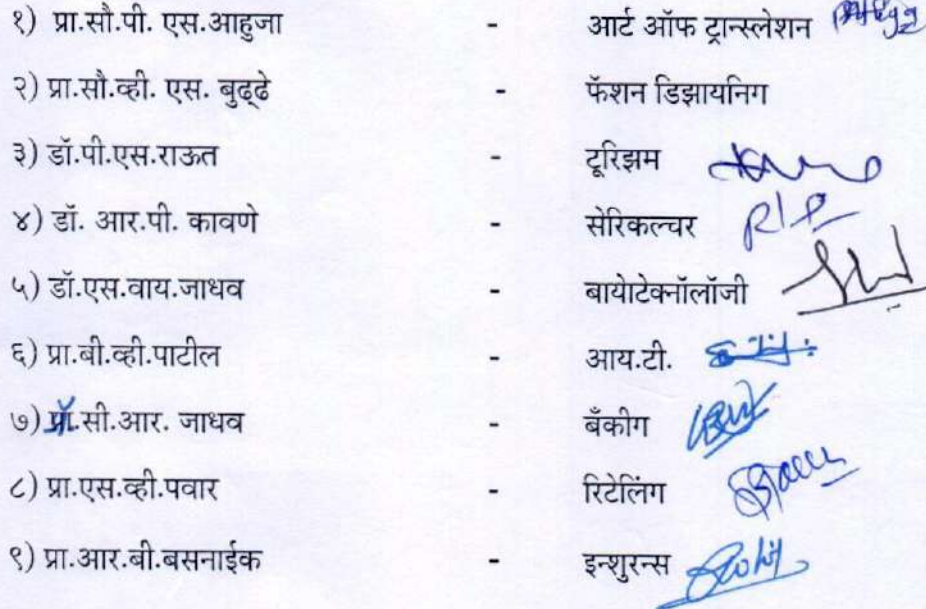 १) प्रा.सौ.पी. एस.आहुजा - आर्ट ऑफ ट्रान्स्लेशन
२) प्रा.सौ.व्ही. एस. बुढ्ढे - फॅशन डिझायनिग
३) डॉ.पी.एस.राऊत - टूरिझम
४) डॉ. आर.पी. कावणे - सेरिकल्चर
५) डॉ.एस.वाय.जाधव - बायोटेक्नॉलॉजी
६) प्रा.बी.व्ही.पाटील - आय.टी.
७) डॉ.सी.आर. जाधव - बँकीग
८) प्रा.एस.व्ही.पवार - रिटेलिंग
९) प्रा.आर.बी.बसनाईक - इन्शुरन्स